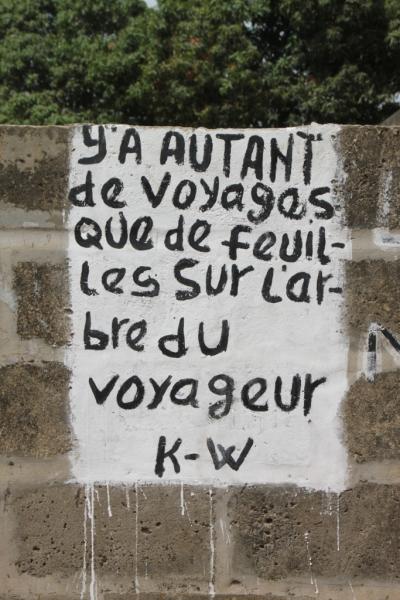 Y'A AUTANT
de voyages
que de feuil-
les sur l'ar-
bre du
voyageur
K-W